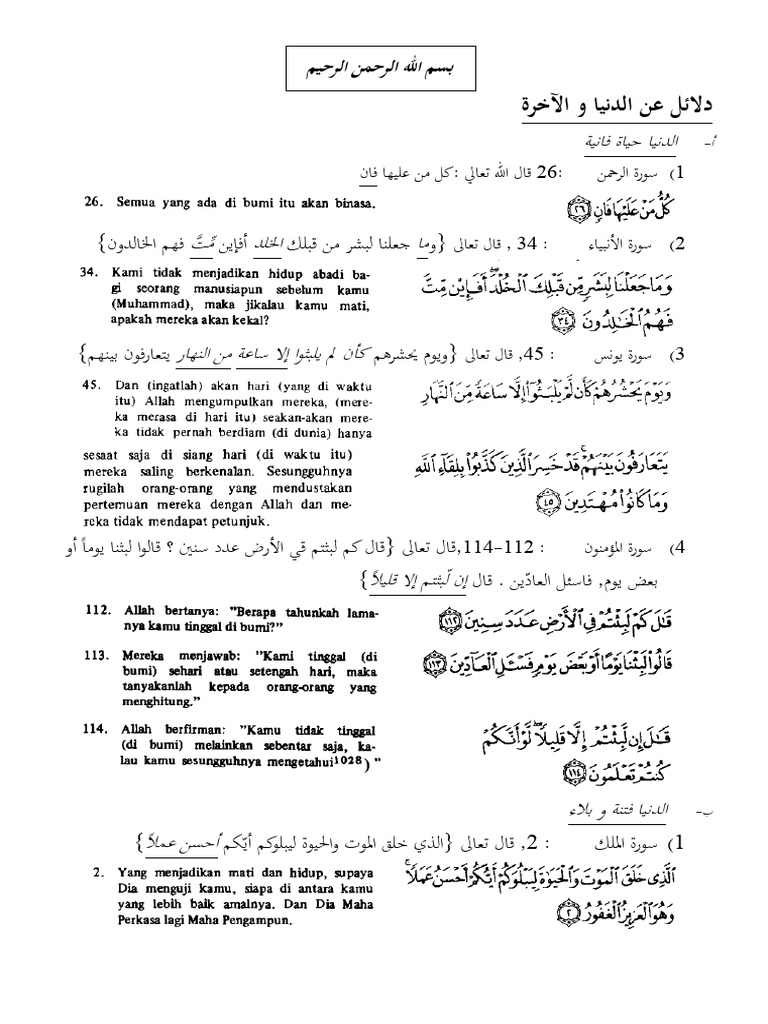 بسم الله الرحمن الرحيم
دلائل عن الدنيا و الآخرة
أ- الدنيا حياة فانية
1) سورة الرحمن :26 قال الله تعالي :كل من عليها فان
26. Semua yang ada di bumi itu akan binasa.
كُلُّ مَنْ عَلَيْهَا فَانٍ ﴿٢٦﴾
2) سورة الأنبياء : 34 , قال تعالى {وما جعلنا لبشر من قبلك الخلد أفإين مِّتَّ فهم الخالدون}
34. Kami tidak menjadikan hidup abadi ba-
gi seorang manusiapun sebelum kamu
(Muhammad), maka jikalau kamu mati,
apakah mereka akan kekal?
وَمَا جَعَلْنَا لِبَشَرٍ مِّن قَبْلِكَ الْخُلْدَ ۖ أَفَإِيْن مِّتَّ
فَهُمُ الْخَالِدُونَ ﴿٣٤﴾
3) سورة يونس : 45, قال تعالى {ويوم يحشرهم كأن لم يلبثوا إلا ساعة من النهار يتعارفون بينهم}
45. Dan (ingatlah) akan hari (yang di waktu
itu) Allah mengumpulkan mereka, (mere-
ka merasa di hari itu) seakan-akan mere-
ka tidak pernah berdiam (di dunia) hanya
sesaat saja di siang hari (di waktu itu)
mereka saling berkenalan. Sesungguhnya
rugilah orang-orang yang mendustakan
pertemuan mereka dengan Allah dan me-
reka tidak mendapat petunjuk.
وَيَوْمَ يَحْشُرُهُمْ كَأَن لَّمْ يَلْبَثُوا إِلَّا سَاعَةً مِّنَ النَّهَارِ
يَتَعَارَفُونَ بَيْنَهُمْ ۚ قَدْ خَسِرَ الَّذِينَ كَذَّبُوا بِلِقَاءِ اللَّهِ
وَمَا كَانُوا مُهْتَدِينَ ﴿٤٥﴾
4) سورة المؤمنون : 112-114,قال تعالى {قال كم لبثتم قي الأرض عدد سنين ؟ قالوا لبثنا يوماً أو
بعض يوم, فاسئل العادّين . قال إن لّبثتم إلا قليلاً}
112. Allah bertanya: "Berapa tahunkah lama-
nya kamu tinggal di bumi?"
قَالَ كَمْ لَبِثْتُمْ فِي الْأَرْضِ عَدَدَ سِنِينَ ﴿١١٢﴾
113. Mereka menjawab: "Kami tinggal (di
bumi) sehari atau setengah hari, maka
tanyakanlah kepada orang-orang yang
menghitung."
قَالُوا لَبِثْنَا يَوْمًا أَوْ بَعْضَ يَوْمٍ فَسْـَٔلِ الْعَادِّينَ ﴿١١٣﴾
114. Allah berfirman: "Kamu tidak tinggal
(di bumi) melainkan sebentar saja, ka-
lau kamu sesungguhnya mengetahui1028)"
قَالَ إِن لَّبِثْتُمْ إِلَّا قَلِيلًا ۖ لَّوْ أَنَّكُمْ
كُنتُمْ تَعْلَمُونَ ﴿١١٤﴾
ب- الدنيا فتنة و بلاء
1) سورة الملك : 2, قال تعالى {الذي خلق الموت والحيوة ليبلوكم أيّكم أحسن عملاً}
2. Yang menjadikan mati dan hidup, supaya
Dia menguji kamu, siapa di antara kamu
yang lebih baik amalnya. Dan Dia Maha
Perkasa lagi Maha Pengampun.
الَّذِي خَلَقَ الْمَوْتَ وَالْحَيَوٰةَ لِيَبْلُوَكُمْ أَيُّكُمْ أَحْسَنُ عَمَلًا ۚ
وَهُوَ الْعَزِيزُ الْغَفُورُ ﴿٢﴾